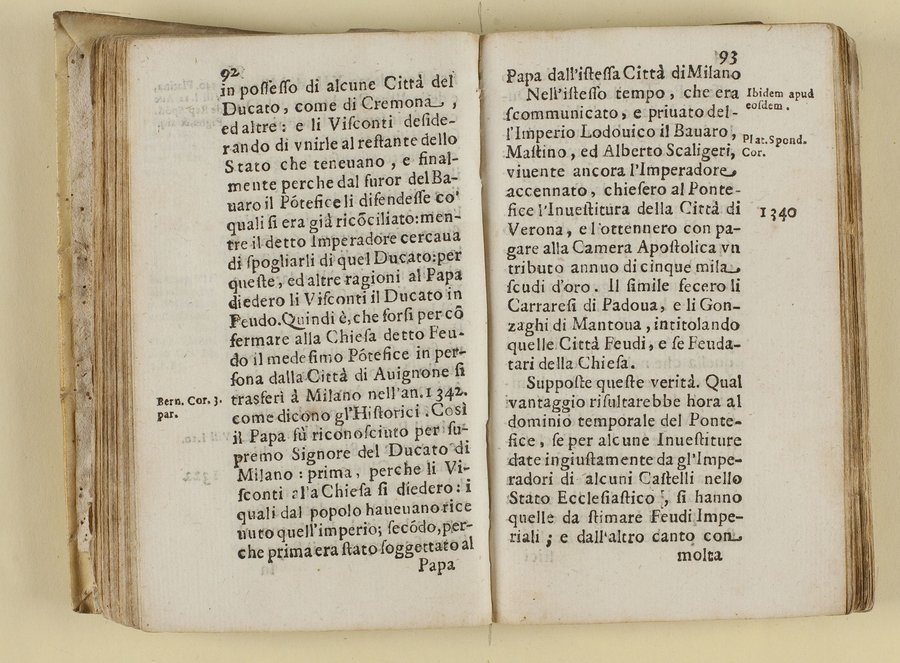 92
in poſſeſſo di alcune Città del
Ducato, come di Cremona,
ed altre: e li Viſconti deſide-
rando di vnirle al reſtante dello
Stato che teneuano, e final-
mente perche dal furor del Ba-
uaro il Põteficeli difendeſſe co'
quali ſi era già ricõciliato: men-
tre il detto Imperadore cercaua
di ſpogliarli di quel Ducato: per
queſte, ed altre ragioni al Papa
diedero li Viſconti il Ducato in
Feudo. Quindi è, che forſi per cõ
fermare alla Chieſa detto Feu-
do il medeſimo Põtefice in per-
ſona dalla Città di Auignone ſi
Bern. Cor. 3. traſferì à Milano nell'an. 1342.
par. come dicono gl'Hiſtorici. Così
il Papa fù riconoſciuto per ſu-
premo Signore del Ducato di
Milano: prima, perche li Vi-
ſconti al'a Chieſa ſi diedero: i
quali dal popolo haueuano rice
uuto quell'imperio; ſecõdo, per-
che prima era ſtato ſoggettato al
Papa
93
Papa dall'iſteſſa Città di Milano
Nell'iſteſſo tempo, che era Ibidem apud
ſcommunicato, e priuato del- eoſdem.
l'Imperio Lodouico il Bauaro,
Maſtino, ed Alberto Scaligeri, Plat. Spond.
viuente ancora l'Imperadore Cor.
accennato, chieſero al Ponte-
fice l'Inueſtitura della Città di 1340
Verona, e l'ottennero con pa-
gare alla Camera Apoſtolica vn
tributo annuo di cinque mila
ſcudi d'oro. Il ſimile fecero li
Carrareſi di Padoua, e li Gon-
zaghi di Mantoua, intitolando
quelle Città Feudi, e ſe Feuda-
tari della Chieſa.
Suppoſte queſte verità. Qual
vantaggio riſultarebbe hora al
dominio temporale del Ponte-
fice, ſe per alcune Inueſtiture
date ingiuſtamente da gl'Impe-
radori di alcuni Caſtelli nello
Stato Eccleſiaſtico, ſi hanno
quelle da ſtimare Feudi Impe-
riali; e dall'altro canto con
molta